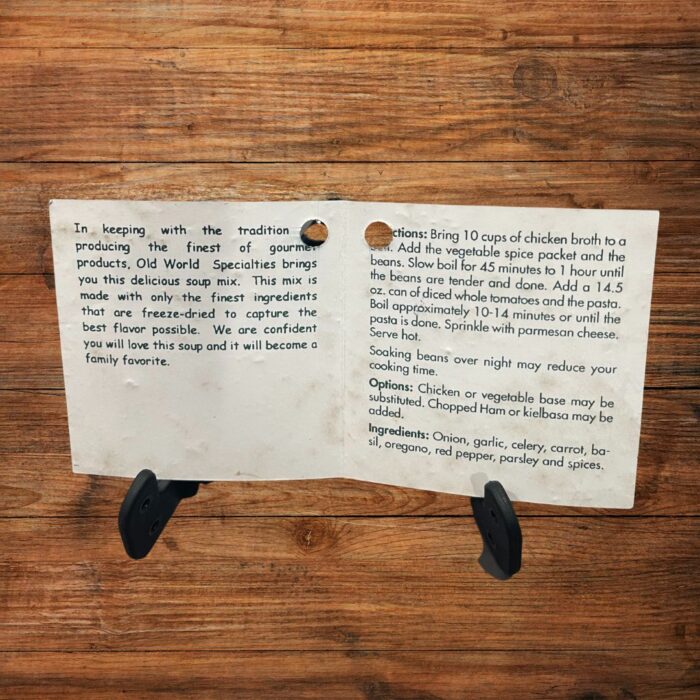 In keeping with the tradition
producing the finest of gourmet
products, Old World Specialties brings
you this delicious soup mix. This mix is
made with only the finest ingredients
that are freeze-dried to capture the
best flavor possible. We are confident
you will love this soup and it will become a
family favorite.
ctions: Bring 10 cups of chicken broth to a
Add the vegetable spice packet and the
beans. Slow boil for 45 minutes to 1 hour until
the beans are tender and done. Add a 14.5
oz. can of diced whole tomatoes and the pasta.
Boil approximately 10-14 minutes or until the
pasta is done. Sprinkle with parmesan cheese.
Serve hot.
Soaking beans over night may reduce your
cooking time.
Options: Chicken or vegetable base may be
substituted. Chopped Ham or kielbasa may be
added.
Ingredients: Onion, garlic, celery, carrot, ba-
sil, oregano, red pepper, parsley and spices.